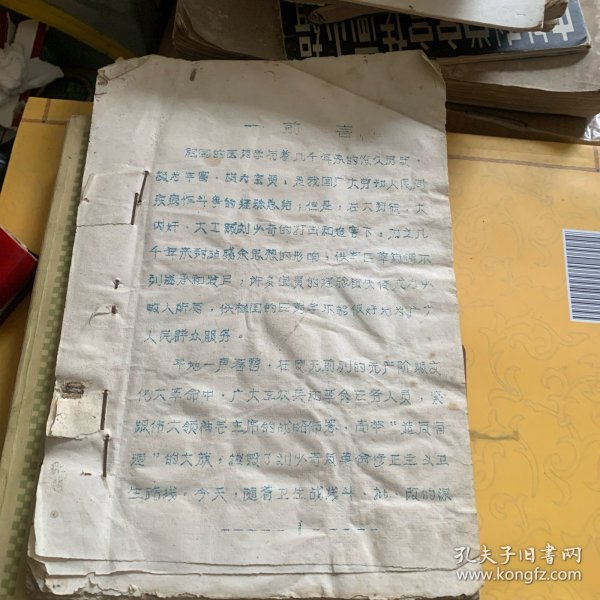 一 前言
祖国的医药学有着几千年来的悠久历史,
极为丰富,极为宝贵,是我国广大劳动人民同
疾病作斗争的经验总结;但是,在大叛徒、大
内奸、大工贼刘少奇的打击和迫害下,加之几
千年来封建残余思想的影响,使祖国医学得不
到继承和发展;许多宝贵的经验被
人所有,使祖国的医药学不能很好地为广大
人民群众服务。
平地一声春雷,在史无前例的无产阶级文
化大革命中,广大工农兵和革命医务人员,紧
跟伟大领袖毛主席的战略部署,高举“造反有
理”的大旗,摧毁了刘少奇反革命修正主义卫
生路线。今天,随着卫生战线斗、批、改的深
1
孔夫子旧书网
www.kongfz.com